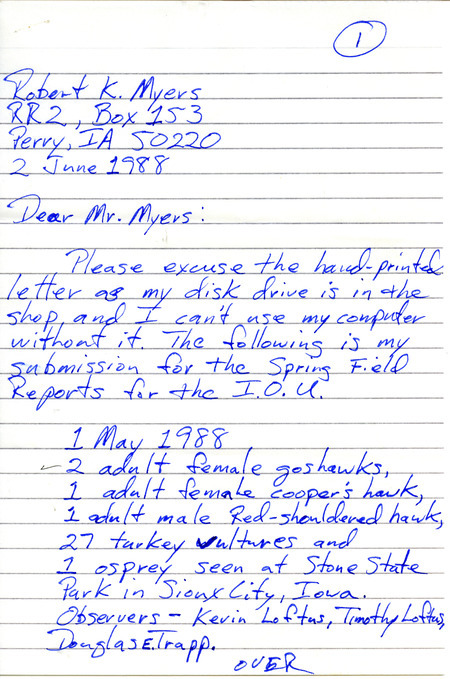 1
Robert K. Myers
RR2, Box 153
Perry, IA 50220
2 June 1988
Dear Mr. Myers:
Please excuse the hand-printed
letter as my disk drive is in the
shop and I can't use my computer
without it. The following is my
submission for the Spring Field
Reports for the I.O.U.
1 May 1988
2 adult female goshawks,
1 adult female cooper's hawk,
1 adult male Red-shouldered hawk,
27 turkey vultures and
1 osprey seen at Stone State
Park in Sioux City, Iowa.
Observers - Kevin Loftus, Timothy Loftus,
Douglas E. Trapp.
OVER